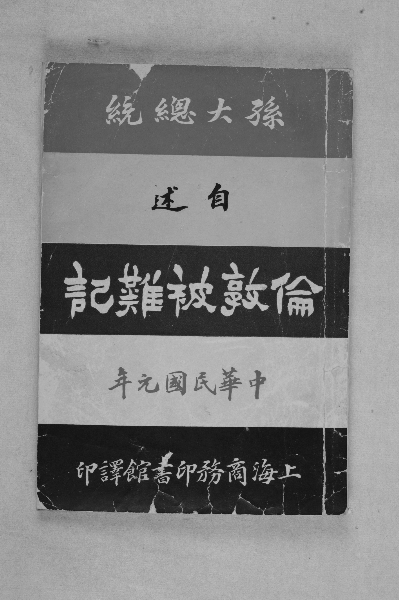 孫大總統
自述
倫敦被難記
中華民國元年
上海商務印書館譯印